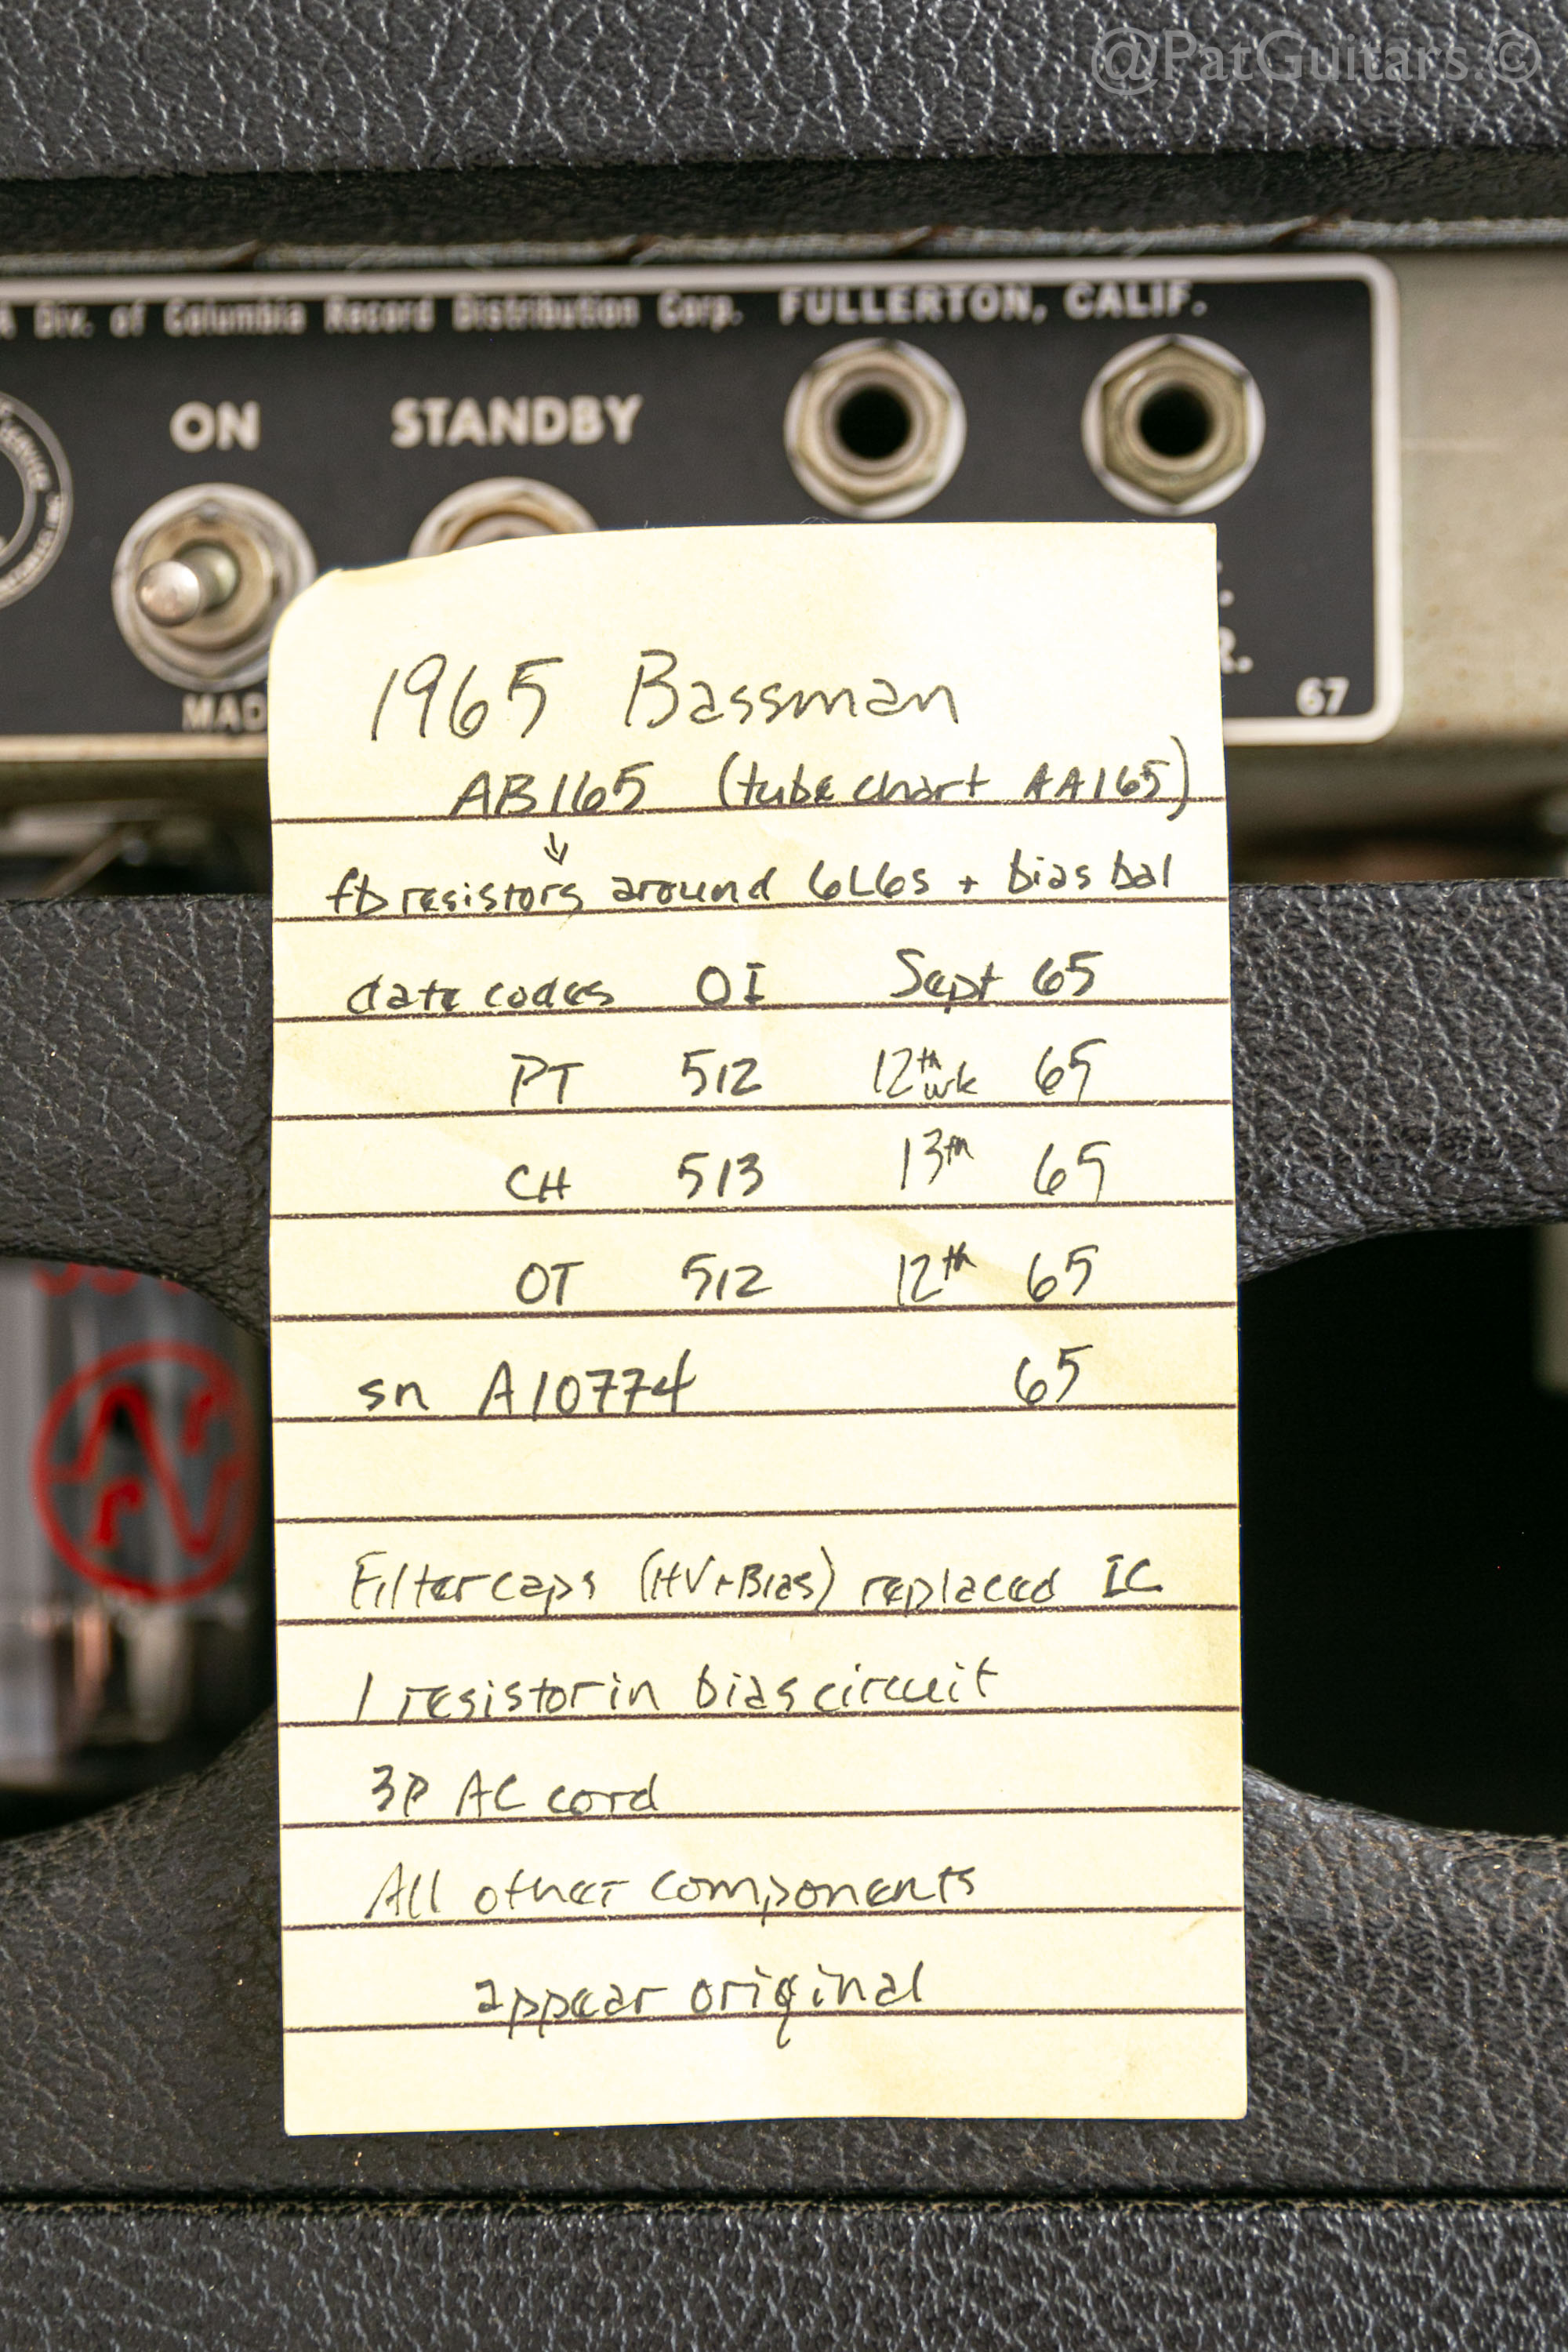 @PatGuitars.©
Div. of Columbia Record Distribution Corp. FULLERTON, CALIF.
ON STANDBY
MAD
R.
67
1965 Bassman
AB165 (tube chart AA165)
↓
fb resistors around 6L6s + bias bal
date codes OI Sept 65
PT 512 12th wk 65
CH 513 13th 65
OT 512 12th 65
sn A10774 65
Filter caps (HV+Bias) replaced IC
1 resistor in bias circuit
3P AC cord
All other components
appear original